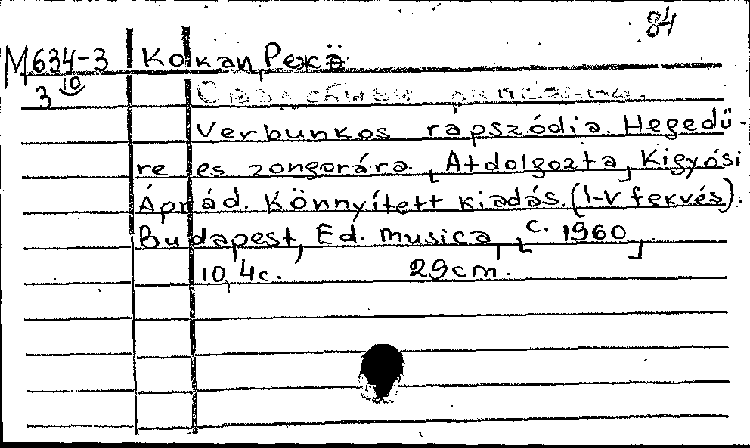 84
M634-3 Kokan, Режö
3 10
Verbunkos rapszódia. Hegedü-
re es zongorára. [Atdolgozta] Kigyósi
Árpád. Könnyített kiadás. (I-V fekvés).
Budapest, Ed. musica, [c. 1960]
10, 4c. 29cm.